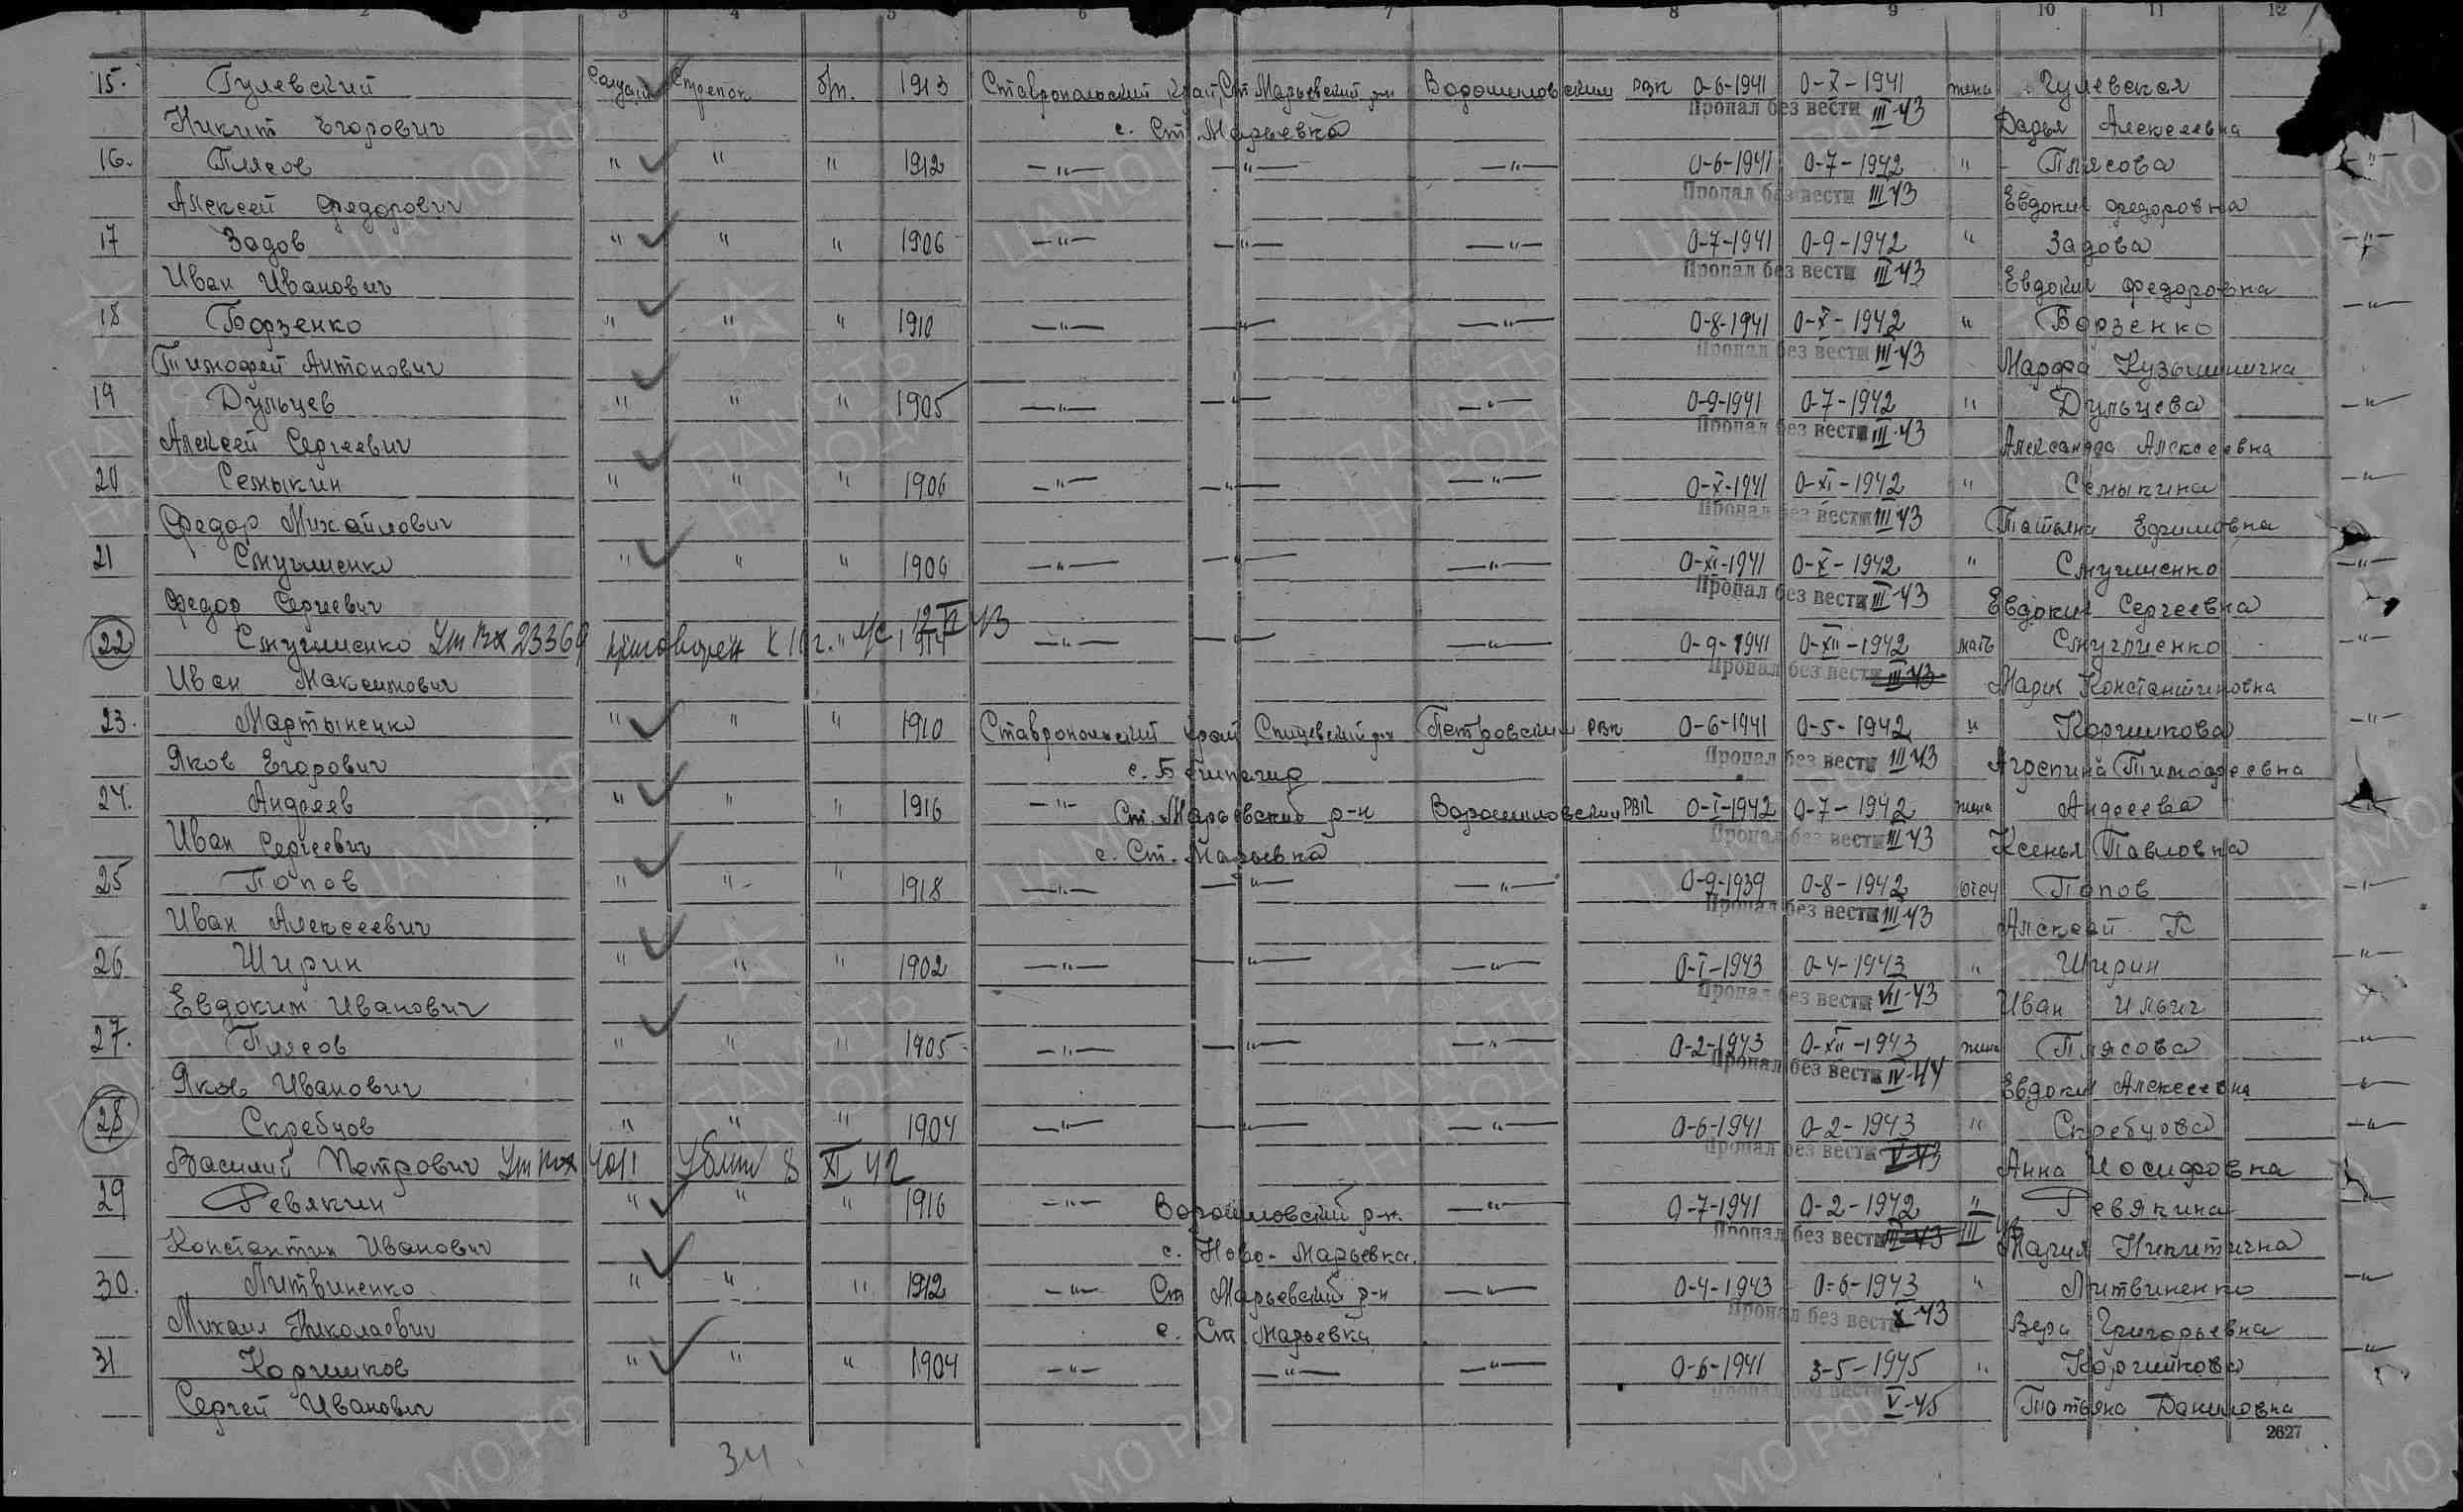 1 2 3 4 5 6 7 8 9 10 11 12
15. Гулевский солдат стрелок б/п. 1913 Ставропольский край, Ст Марьевский рн Ворошиловским РВК 0-6-1941 0-X-1941 жена Гулевская
Пропал без вести III 43
Никит Егорович с. Ст Марьевка Дарья Алексеевна
16. Плясов " " " 1912 —"— —"— —"— 0-6-1941 0-7-1942 " Плясова —"—
Пропал без вести III 43
Алексей Федорович Евдокия Федоровна
17 Задов " " " 1906 —"— —"— —"— 0-7-1941 0-9-1942 " Задова —"—
Пропал без вести III 43
Иван Иванович Евдокия Федоровна
18 Борзенко " " " 1910 —"— —"— —"— 0-8-1941 0-X-1942 " Борзенко —"—
Пропал без вести III 43
Тимофей Антонович Марфа Кузьминична
19 Дульцев " " " 1905 —"— —"— —"— 0-9-1941 0-7-1942 " Дульцева —"—
Пропал без вести III 43
Алексей Сергеевич Александра Алексеевна
20 Семыкин " " " 1906 —"— —"— —"— 0-X-1941 0-XI-1942 " Семыкина —"—
Пропал без вести III 43
Федор Михайлович Татьяна Ефимовна
21 Смугленко " " " 1906 —"— —"— —"— 0-XI-1941 0-X-1942 " Смугленко —"—
Пропал без вести III 43
Федор Сергеевич Евдокия Сергеевна
22 Смугленко 23369 приговорен к 10 г. —"— —"— —"— 0-9-1941 0-XII-1942 мать Смугленко —"—
Пропал без вести III 43
Иван Максимович Мария Константиновна
23. Мартыненко " " " 1910 Ставропольский край Спицевский рн Петровским РВК 0-6-1941 0-5-1942 " Коршикова —"—
Пропал без вести III 43
Яков Егорович с. Бешпагир Агрепина Тимофеевна
24. Андреев " " " 1916 —"— Ст. Марьевский р-н Ворошиловским РВК 0-I-1942 0-7-1942 жена Андреева —"—
Пропал без вести III 43
Иван Сергеевич с. Ст. Марьевка Ксенья Павловна
25 Попов " " " 1918 —"— —"— —"— 0-9-1939 0-8-1942 отец Попов —"—
Пропал без вести III 43
Иван Алексеевич Алексей
26 Ширин " " " 1902 —"— —"— —"— 0-I-1943 0-4-1943 " Ширин —"—
Пропал без вести VII-43
Евдоким Иванович Иван Ильич
27. Плясов " " " 1905 —"— —"— —"— 0-2-1943 0-XII-1943 жена Плясова —"—
Пропал без вести IV-44
Яков Иванович Евдокия Алексеевна
28 Скребцов " " " 1904 —"— —"— —"— 0-6-1941 0-2-1943 " Скребцова —"—
Пропал без вести V-43
Василий Петрович 4011 Убит 8 XI 42 Анна Иосифовна
29 Ревякин " " " 1916 —"— Ворошиловский р-н. —"— 0-7-1941 0-2-1942 " Ревякина —"—
Пропал без вести III 43
Константин Иванович с. Ново-Марьевка. Мария Никитична
30. Литвиненко " " " 1912 —"— Ст Марьевский р-н —"— 0-4-1943 0-6-1943 " Литвиненко —"—
Пропал без вести X-43
Михаил Николаевич с. Ст Марьевка Вера Григорьевна
31 Коршиков " " " 1904 —"— —"— —"— 0-6-1941 3-5-1945 " Коршикова —"—
Пропал без вести V-45
Сергей Иванович Татьяна Даниловна
2627
34